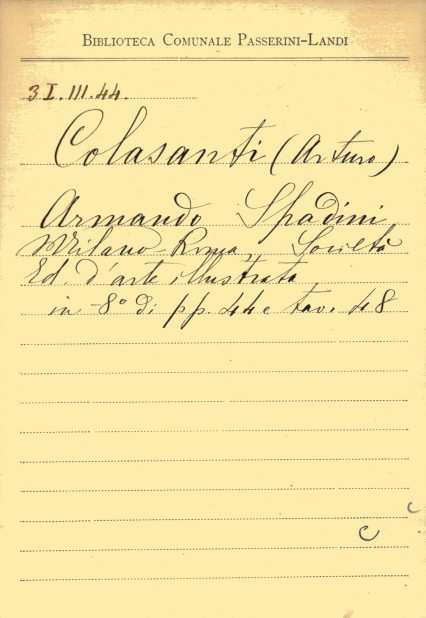 BIBLIOTECA COMUNALE PASSERINI-LANDI
3 I. III. 44.
Colasanti (Arturo)
Armando Spadini
Milano-Roma, Società
Ed. d'arte illustrata
in -8° di pp. 44 e tav. 48
C
C